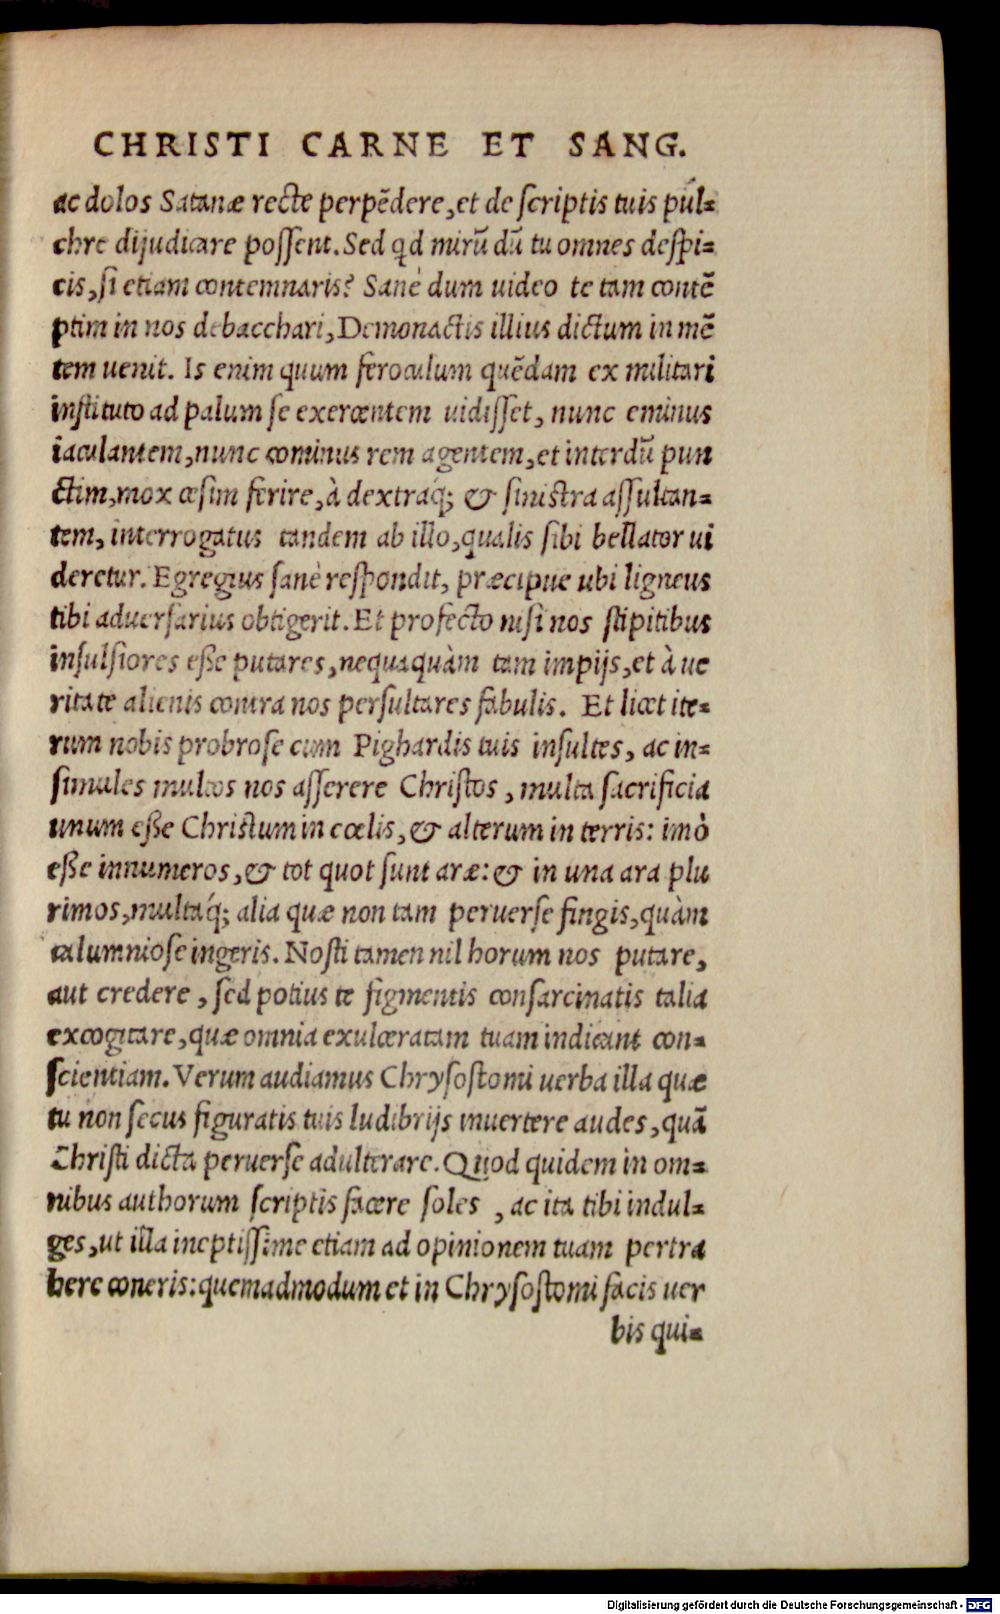 CHRISTI CARNE ET SANG.
ac dolos Satanæ recte perpēdere, et de scriptis tuis pul-
chre dijudicare possent. Sed qd mirū dū tu omnes despi-
cis, si etiam contemnaris? Sanè dum uideo te tam contē
ptim in nos debacchari, Demonactis illius dictum in mē
tem uenit. Is enim quum feroculum quēdam ex militari
instituto ad palum se exercentem uidisset, nunc eminus
iaculantem, nunc cominus rem agentem, et interdū pun
ctim, mox cæsim ferire, à dextraq́; & sinistra assultan-
tem, interrogatus tandem ab illo, qualis sibi bellator ui
deretur. Egregius sanè respondit, præcipue ubi ligneus
tibi aduersarius obtigerit. Et profecto nisi nos stipitibus
insulsiores eße putares, nequaquàm tam impijs, et à ue
ritate alienis contra nos persultares fabulis. Et licet ite-
rum nobis probrose cum Pighardis tuis insultes, ac in-
simules multos nos asserere Christos, multa sacrificia
unum eße Christum in cœlis, & alterum in terris: imò
eße innumeros, & tot quot sunt aræ: & in una ara plu
rimos, multaq́; alia quæ non tam peruerse fingis, quàm
calumniose ingeris. Nosti tamen nil horum nos putare,
aut credere, sed potius te figmentis consarcinatis talia
excogitare, quæ omnia exulceratam tuam indicant con-
scientiam. Verum audiamus Chrysostomi uerba illa quæ
tu non secus figuratis tuis ludibrijs inuertere audes, quā
Christi dicta peruerse adulterare. Quod quidem in om-
nibus authorum scriptis facere soles, ac ita tibi indul-
ges, ut illa ineptissime etiam ad opinionem tuam pertra
here coneris: quemadmodum et in Chrysostomi facis uer
bis qui-
Digitalisierung gefördert durch die Deutsche Forschungsgemeinschaft - DFG